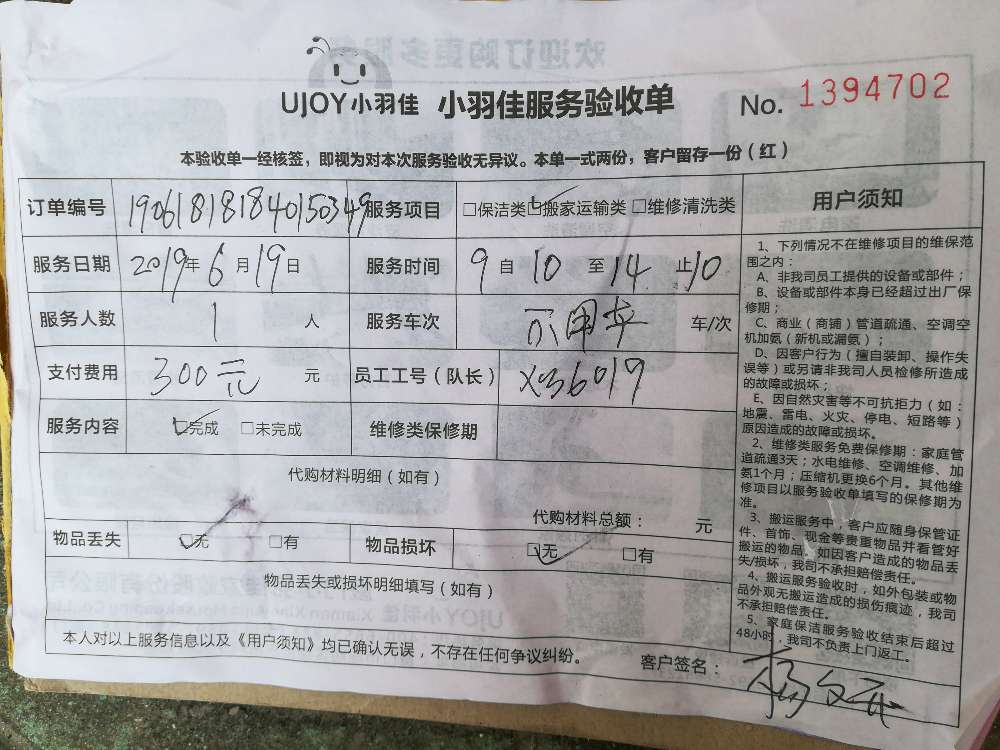 UJOY小羽佳 小羽佳服务验收单 No. 1394702
本验收单一经核签，即视为对本次服务验收无异议。本单一式两份，客户留存一份（红）
订单编号 190618181840150349 服务项目 □保洁类 ☑搬家运输类 □维修清洗类
服务日期 2019年6月19日 服务时间 9自10至14止10
服务人数 1 人 服务车次 不用车 车/次
支付费用 300元 元 员工工号（队长） X36019
服务内容 ☑完成 □未完成 维修类保修期
代购材料明细（如有）
代购材料总额： 元
物品丢失 ☑无 □有 物品损坏 ☑无 □有
物品丢失或损坏明细填写（如有）
本人对以上服务信息以及《用户须知》均已确认无误，不存在任何争议纠纷。
客户签名：
用户须知
1、下列情况不在维修项目的维保范
围之内：
A、非我司员工提供的设备或部件；
B、设备或部件本身已经超过出厂保
修期；
C、商业（商铺）管道疏通、空调空
机加氨（新机或漏氨）；
D、因客户行为（擅自装卸、操作失
误等）或另请非我司人员检修所造成
的故障或损坏；
E、因自然灾害等不可抗拒力（如：
地震、雷电、火灾、停电、短路等）
原因造成的故障或损坏。
2、维修类服务免费保修期：家庭管
道疏通3天；水电维修、空调维修、加
氨1个月；压缩机更换6个月。其他维
修项目以服务验收单填写的保修期为
准。
3、搬运服务中，客户应随身保管证
件、首饰、现金等贵重物品并看管好
搬运的物品。如因客户造成的物品丢
失/损坏，我司不承担赔偿责任。
4、搬运服务验收时，如外包装或物
品外观无搬运造成的损伤痕迹，我司
不承担赔偿责任。
5、家庭保洁服务验收结束后超过
48小时，我司不负责上门返工。